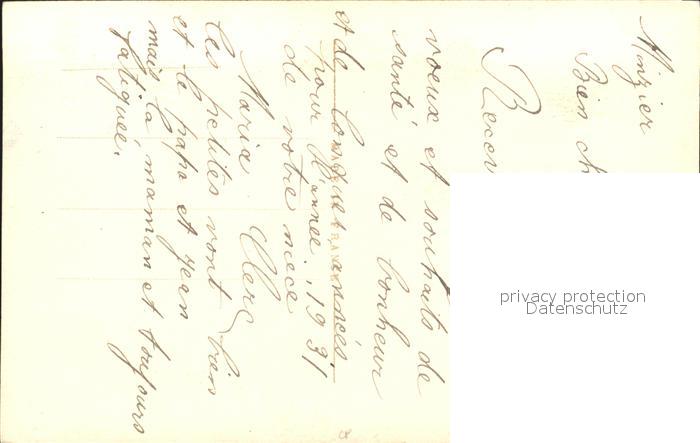 Minzier
Bien ch
Recev
voeux et souhaits de
santé et de bonheur
et de longues années
pour l'année 1931
de votre niece
Maria Clerc
les petites vont bien
et le papa et Jean
mais la maman est toujours
fatiguée.
privacy protection
Datenschutz